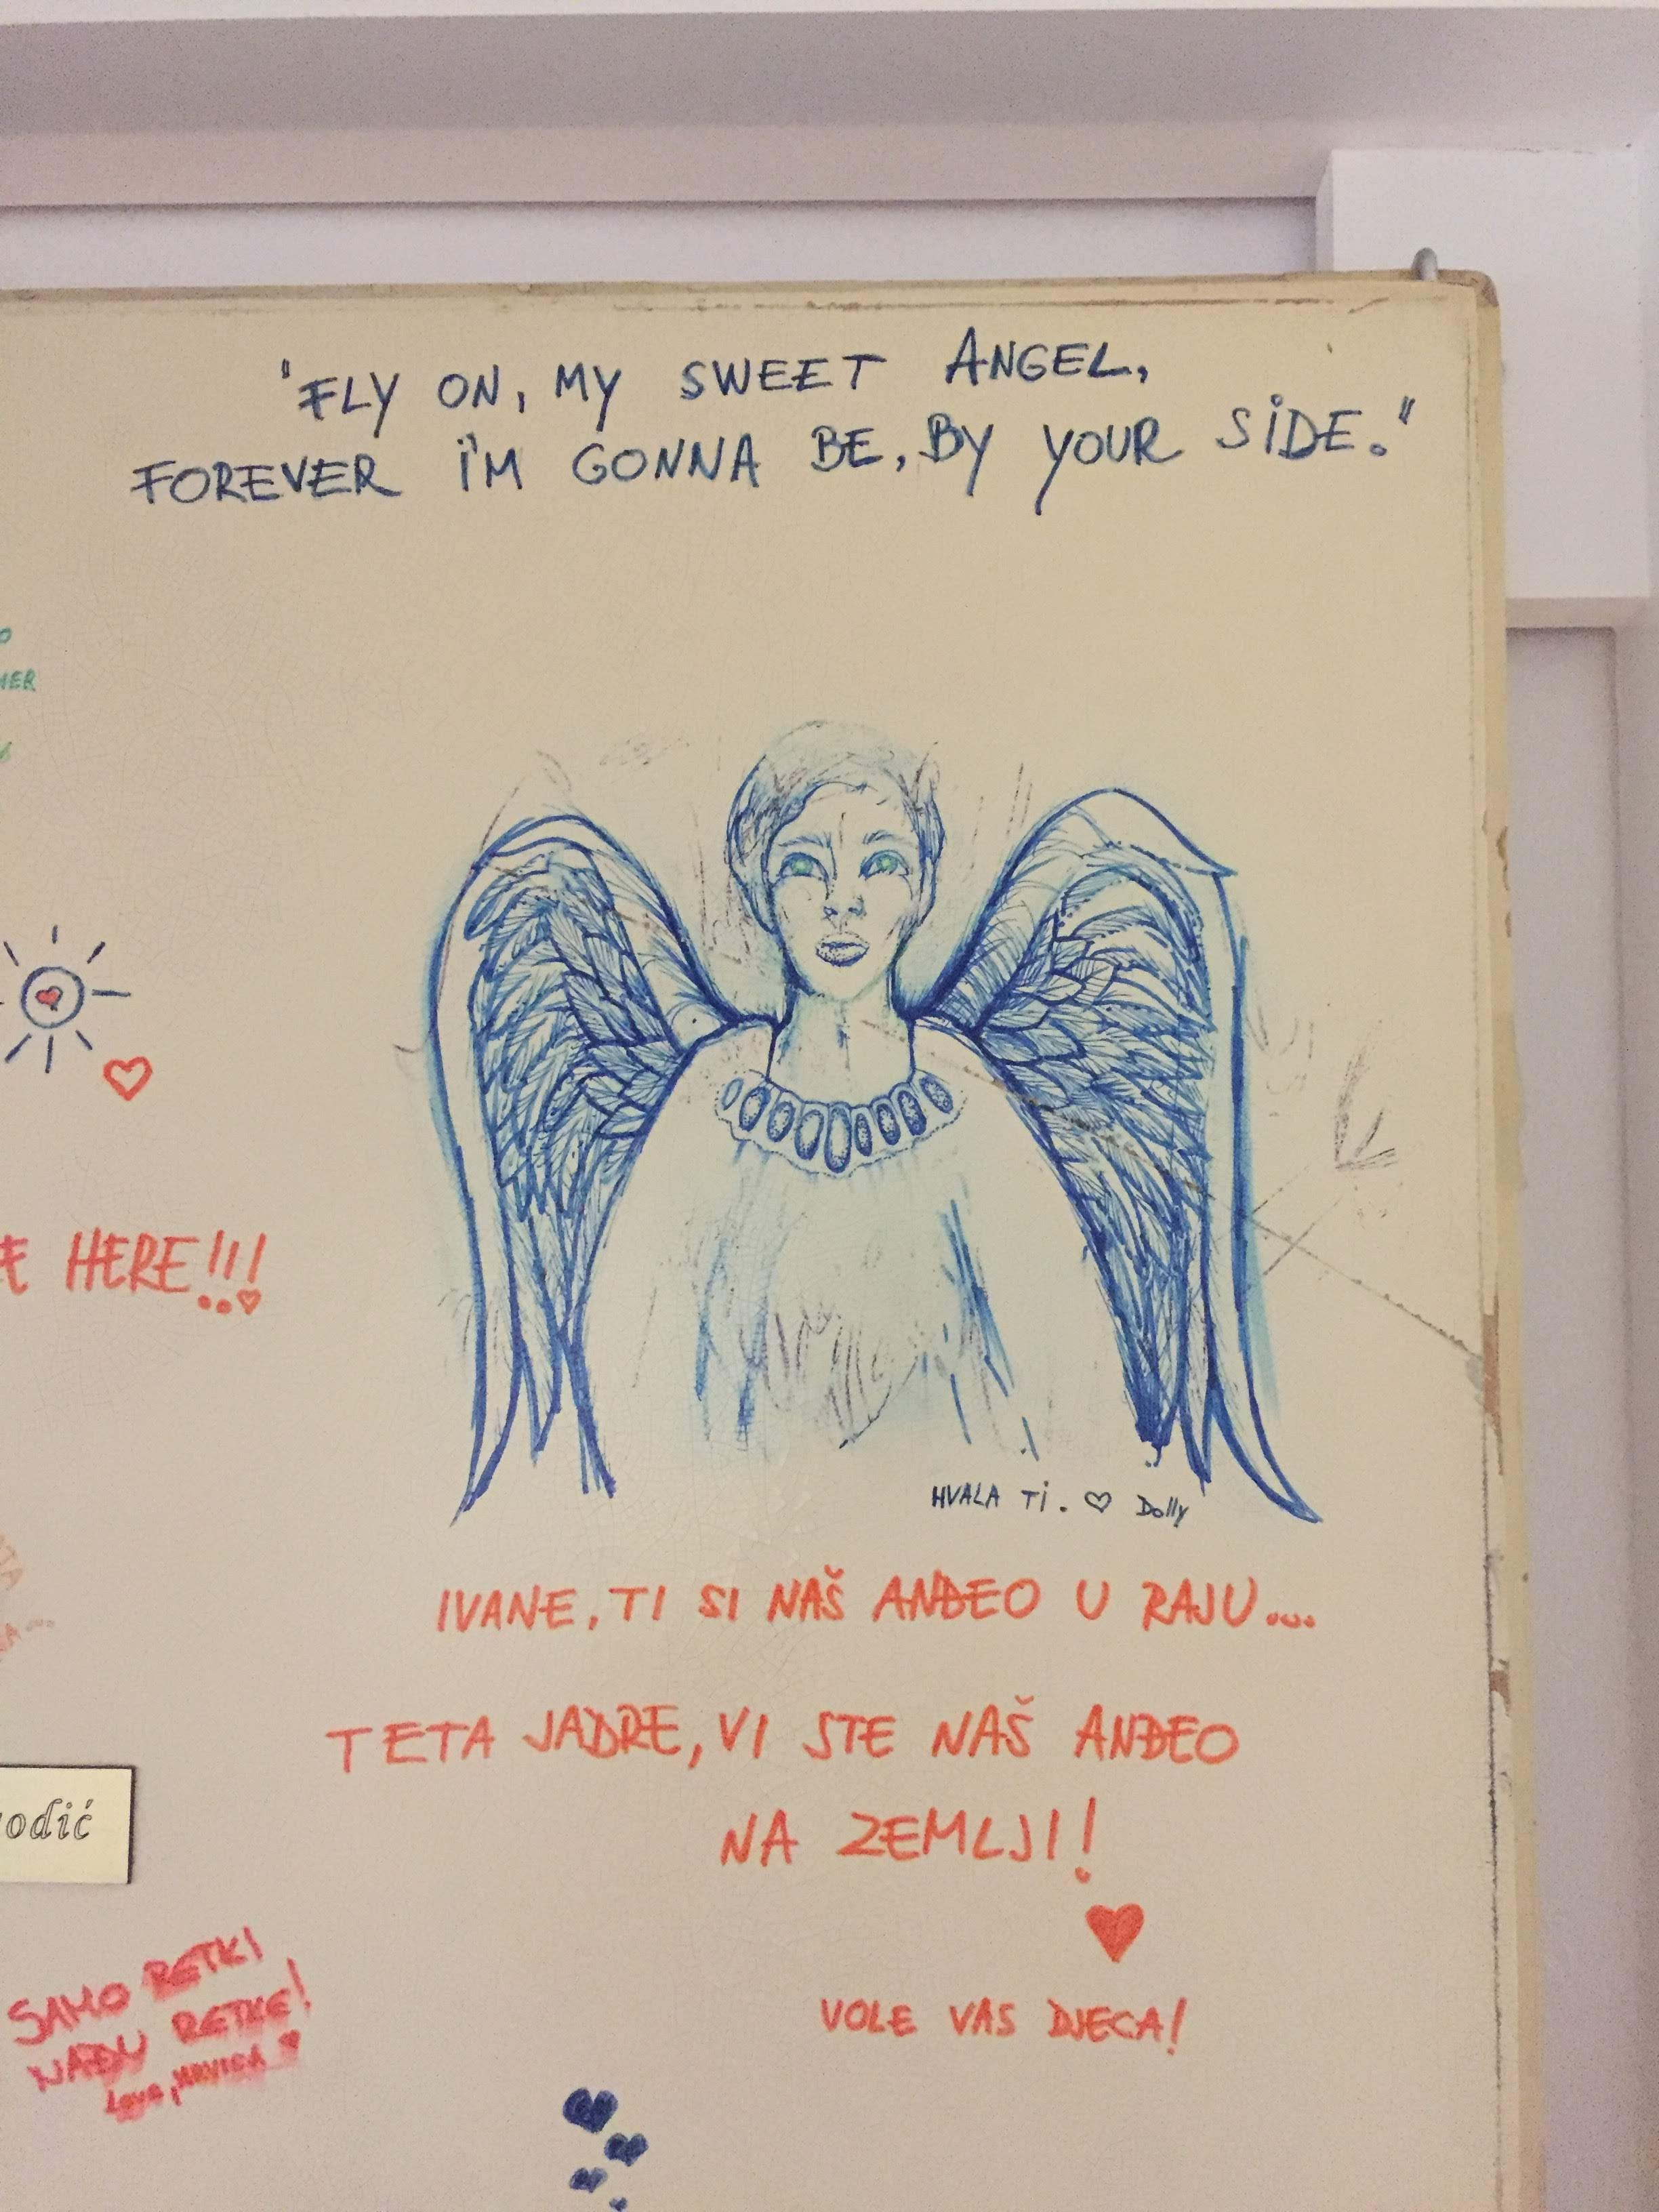 "FLY ON, MY SWEET ANGEL,
FOREVER I'M GONNA BE, BY YOUR SIDE."
HERE!!!
HVALA TI. ♡ Dolly
IVANE, TI SI NAŠ ANĐEO U RAJU...
TETA JADRE, VI STE NAŠ ANĐEO
NA ZEMLJI!
VOLE VAS DJECA!
SAMO RETKI
NAĐU RETKE!